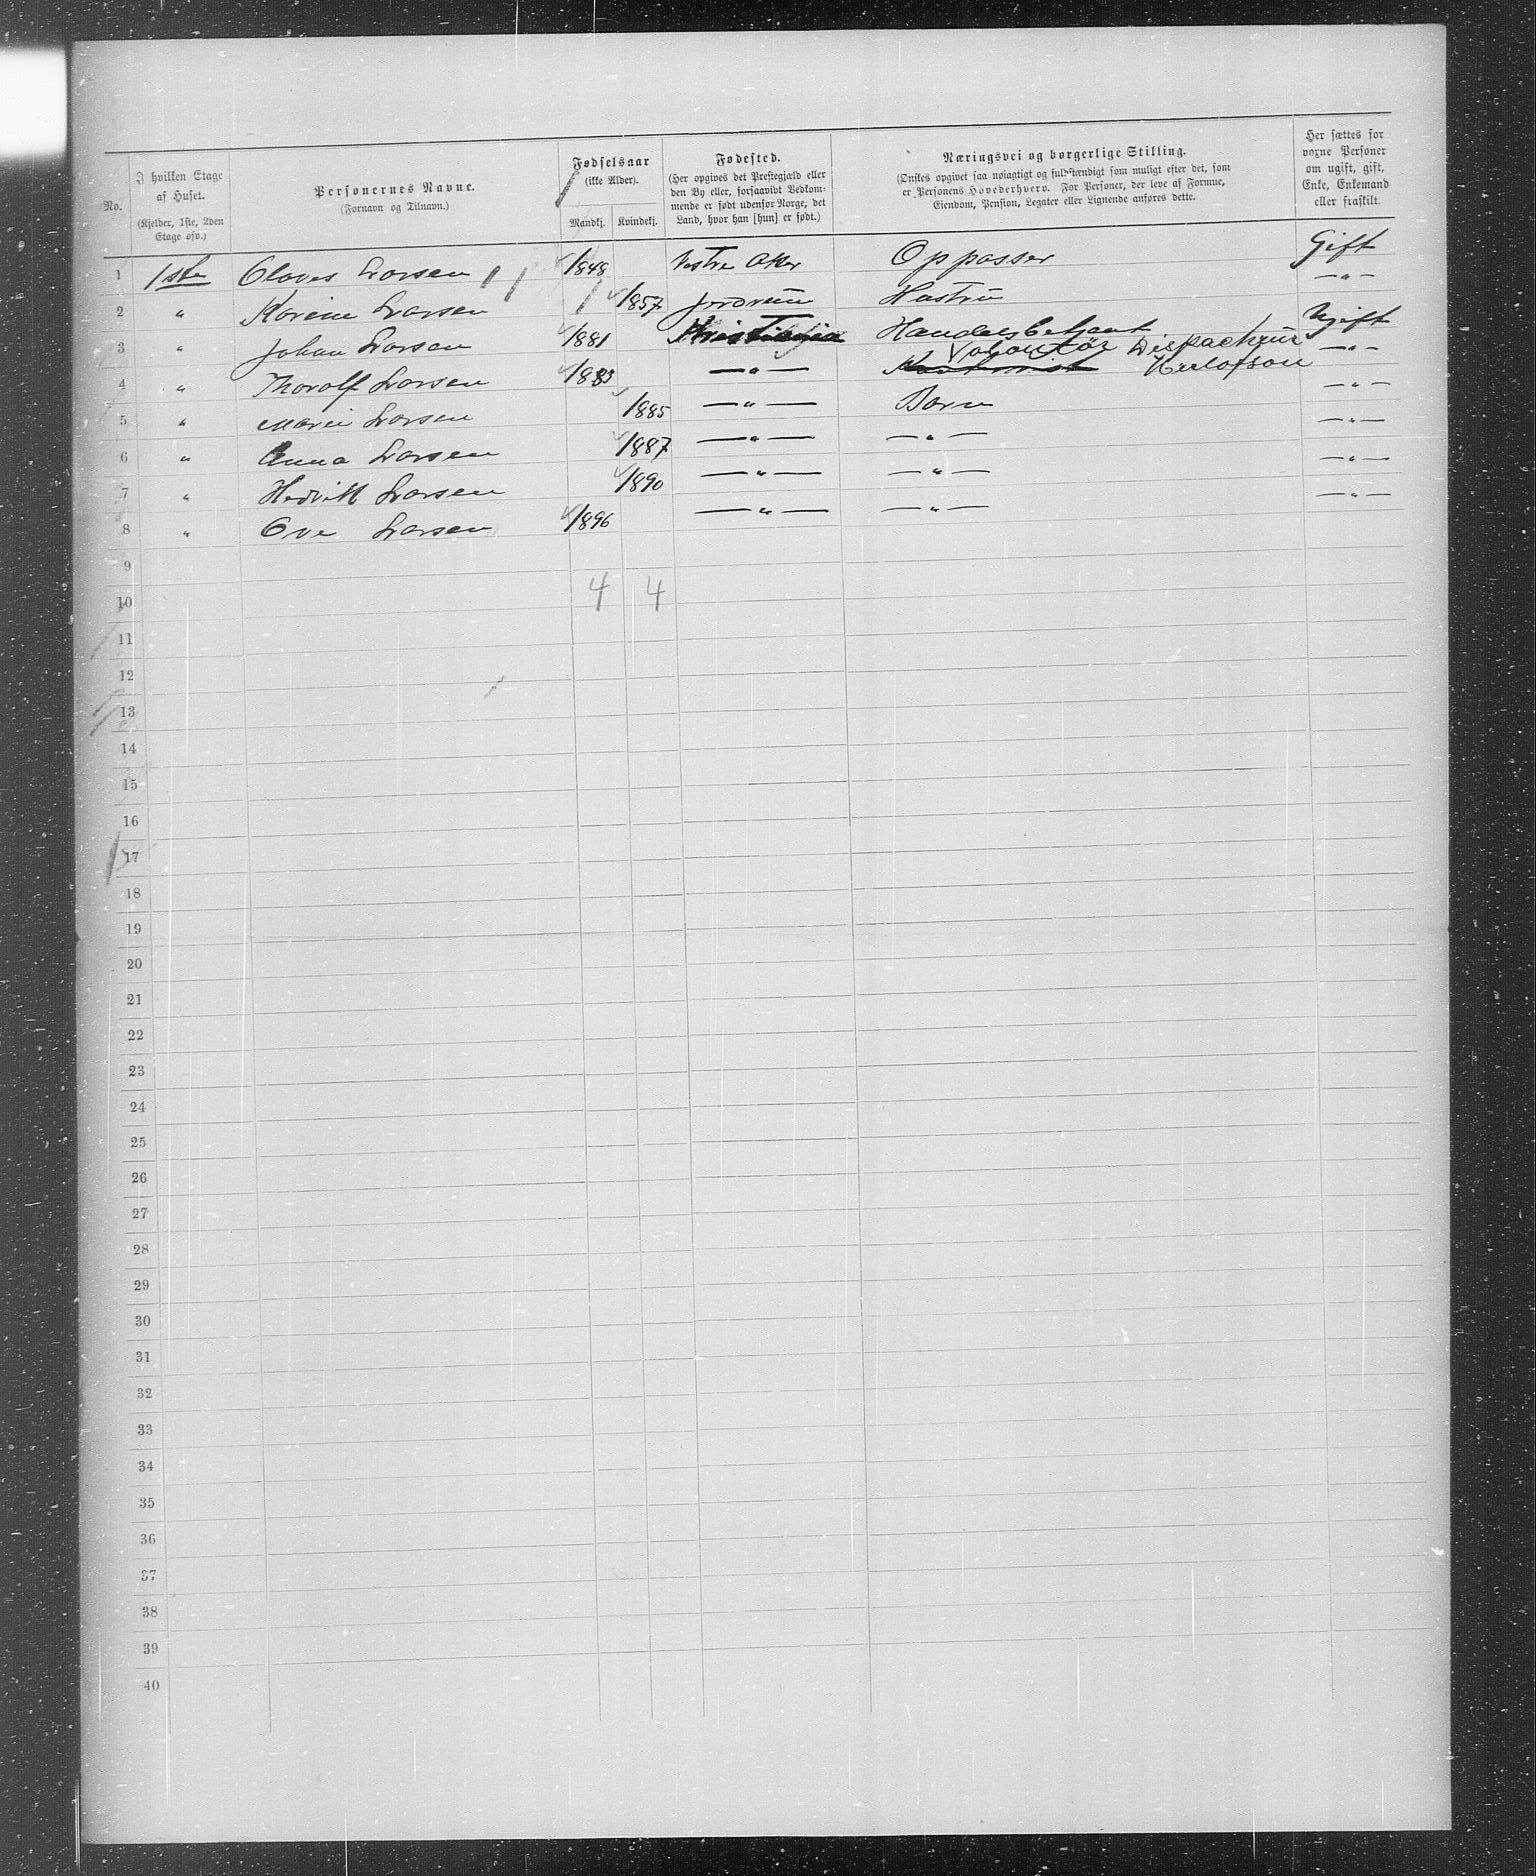 No.
I hvilken Etage af Huset.
(Kjelder, 1ste, 2den Etage osv.)
Personernes Navne.
(Fornavn og Tilnavn.)
Fødselsaar
(ikke Alder).
Mandkj. Kvindekj.
Fødested.
(Her opgives det Prestegjæld eller
den By eller, forsaavidt Vedkom-
mende er født udenfor Norge, det
Land, hvor han [hun] er født.)
Næringsvei og borgerlige Stilling.
(Ønskes opgivet saa nøiagtigt og fuldstændigt som muligt efter det, som
er Personens Hovederhverv. For Personer, der leve af Formue,
Eiendom, Pension, Legater eller Lignende anføres dette.
Her sættes for
voxne Personer
om ugift, gift,
Enke, Enkemand
eller fraskilt.
1 1ste Olaves Larsen 1848 Vestre Aker Oppasser Gift
2 " Karine Larsen 1857 Hustru — " —
3 " Johan Larsen 1881 Kristiania Handelsbetjent Ugift
4 " Thoralf Larsen 1883 — " — Volontør Dispachør Herlofson — " —
5 " Marie Larsen 1885 — " — Barn — " —
6 " Anna Larsen 1887 — " — — " — — " —
7 " Larsen 1890 — " — — " — — " —
8 " Ove Larsen 1896 — " — — " — — " —
9
4 4
10
11
12
13
14
15
16
17
18
19
20
21
22
23
24
25
26
27
28
29
30
31
32
33
34
35
36
37
38
39
40